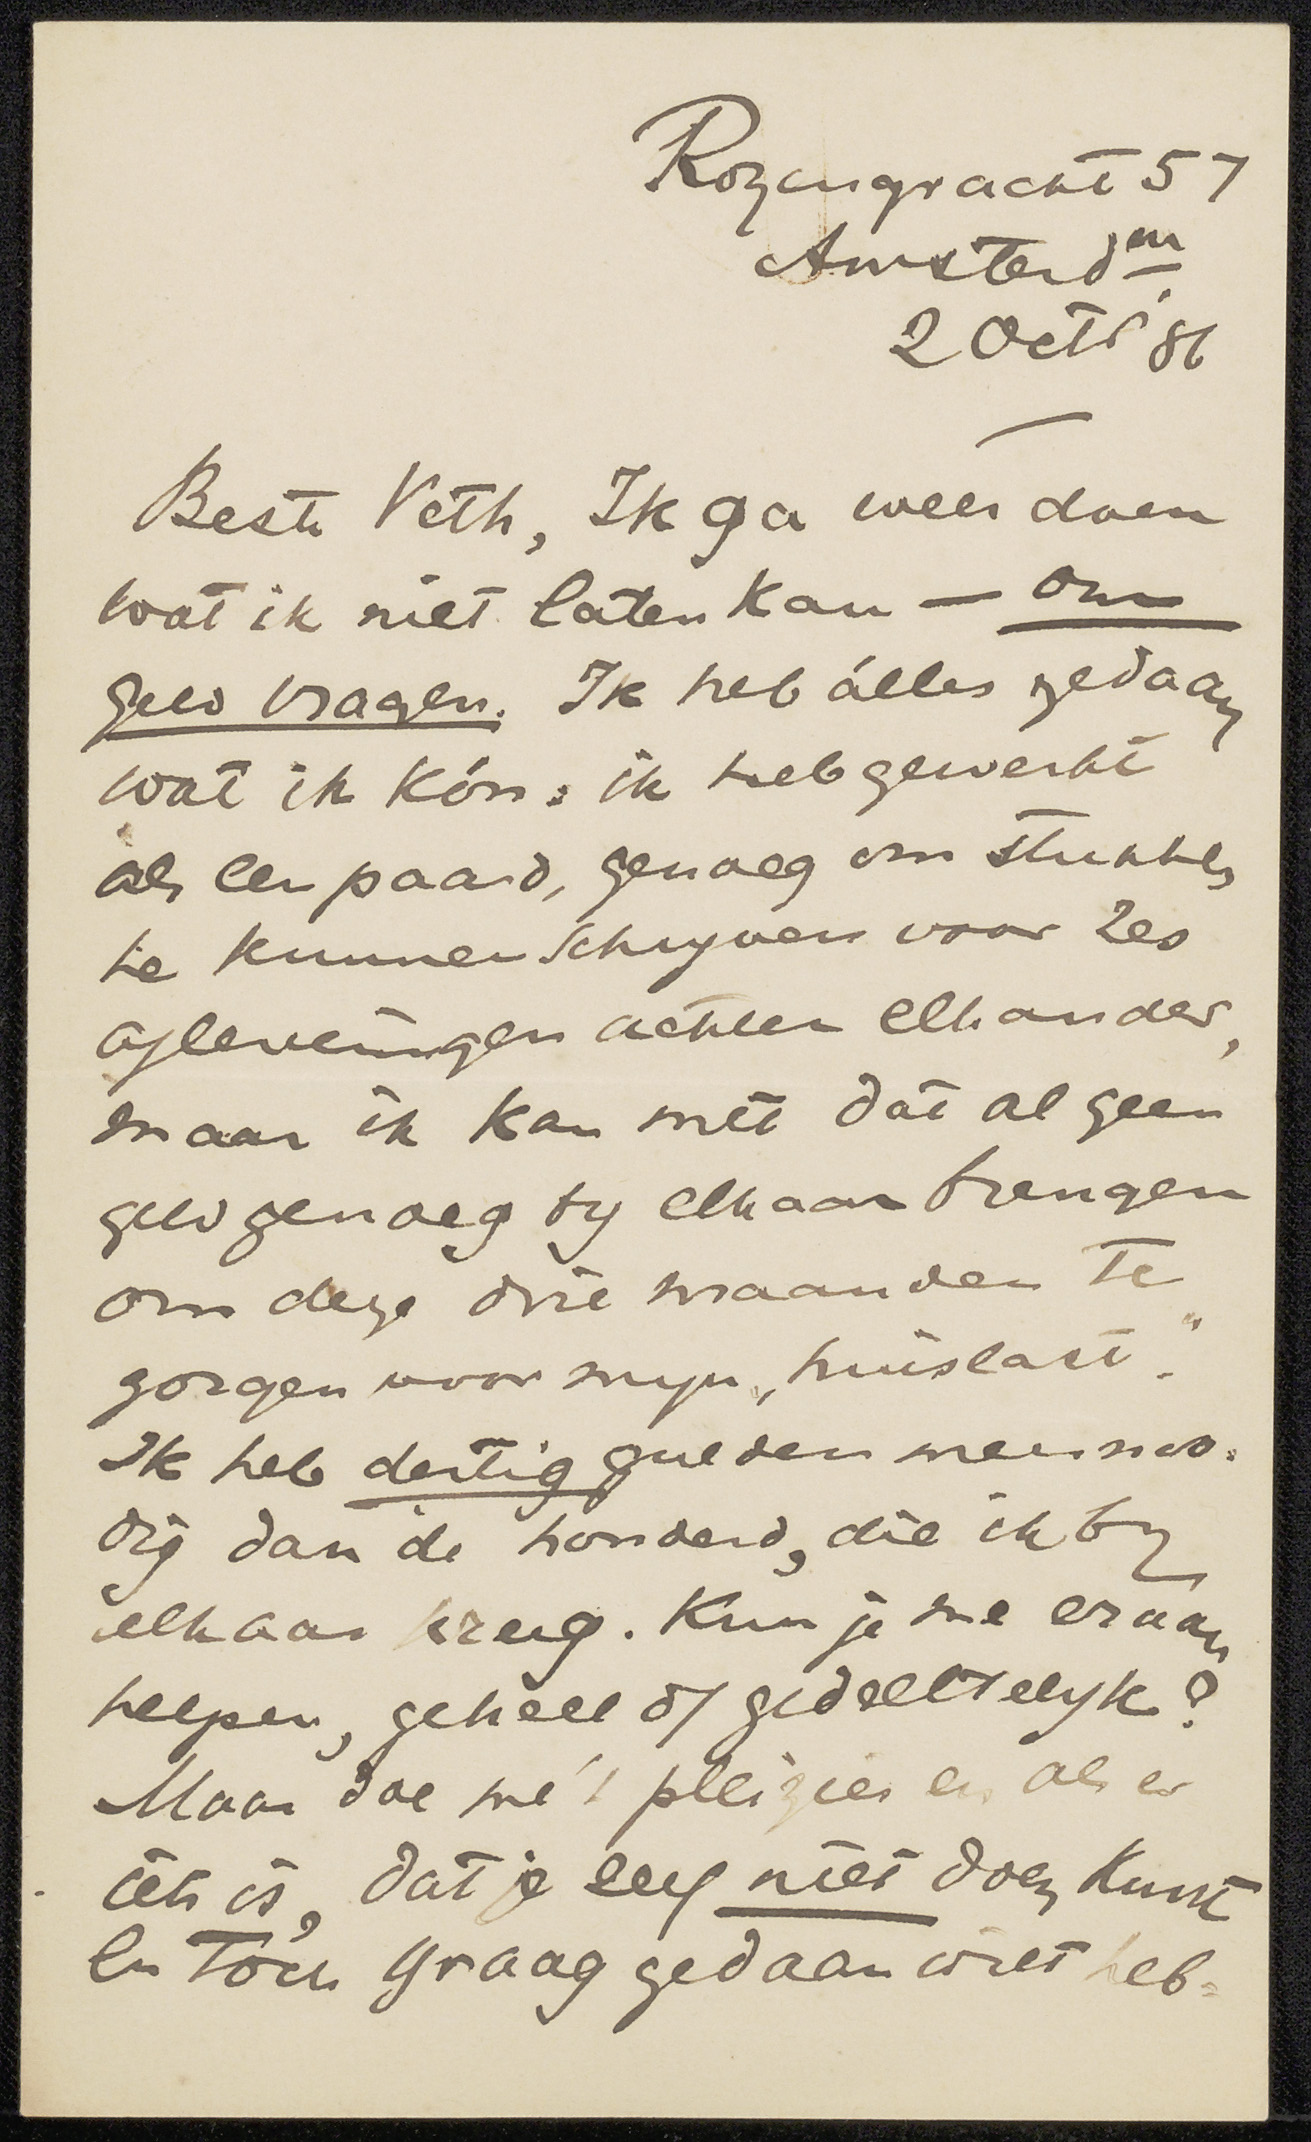 Rozengracht 57
Amsterdm
2 Octr '86
Beste Veth, Ik ga weer doen
wat ik niet laten kan — om
geld vragen. Ik heb álles gedaan
wat ik kón: ik heb gewerkt
als een paard, genoeg om stukken
te kunnen schrijven voor zes
afleveringen achter elkander,
maar ik kan met dat al geen
geld genoeg bij elkaar brengen
om deze drie maanden te
zorgen voor mijn „huislast".
Ik heb dertig gulden meer noo-
dig dan de honderd, die ik bij
elkaar kreeg. Kun je me eraan
helpen, geheel of gedeeltelijk?
Maar doe me 't pleizier en als er
iets is, dat je zelf niet doen kunt
en tóch graag gedaan wilt heb-